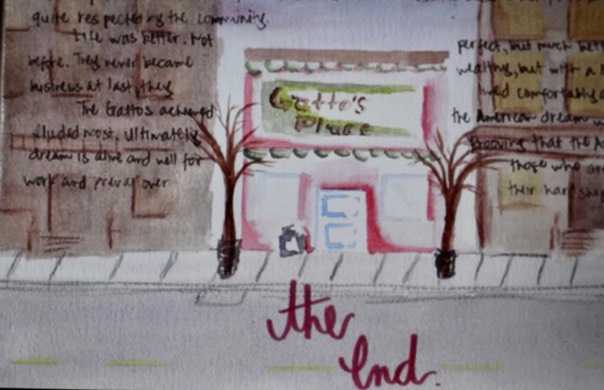 quite respected by the community.
Life was better. Not
perfect, but much bett
before. They never became
wealthy, but with a
business at last, they
lived comfortably a
The Gattos achieved
the American dream
eluded most, ultimately
prooving that the A
dream is alive and well for
those who are
work and prevail over
their hardsh
Gatto's
Place
the
End.